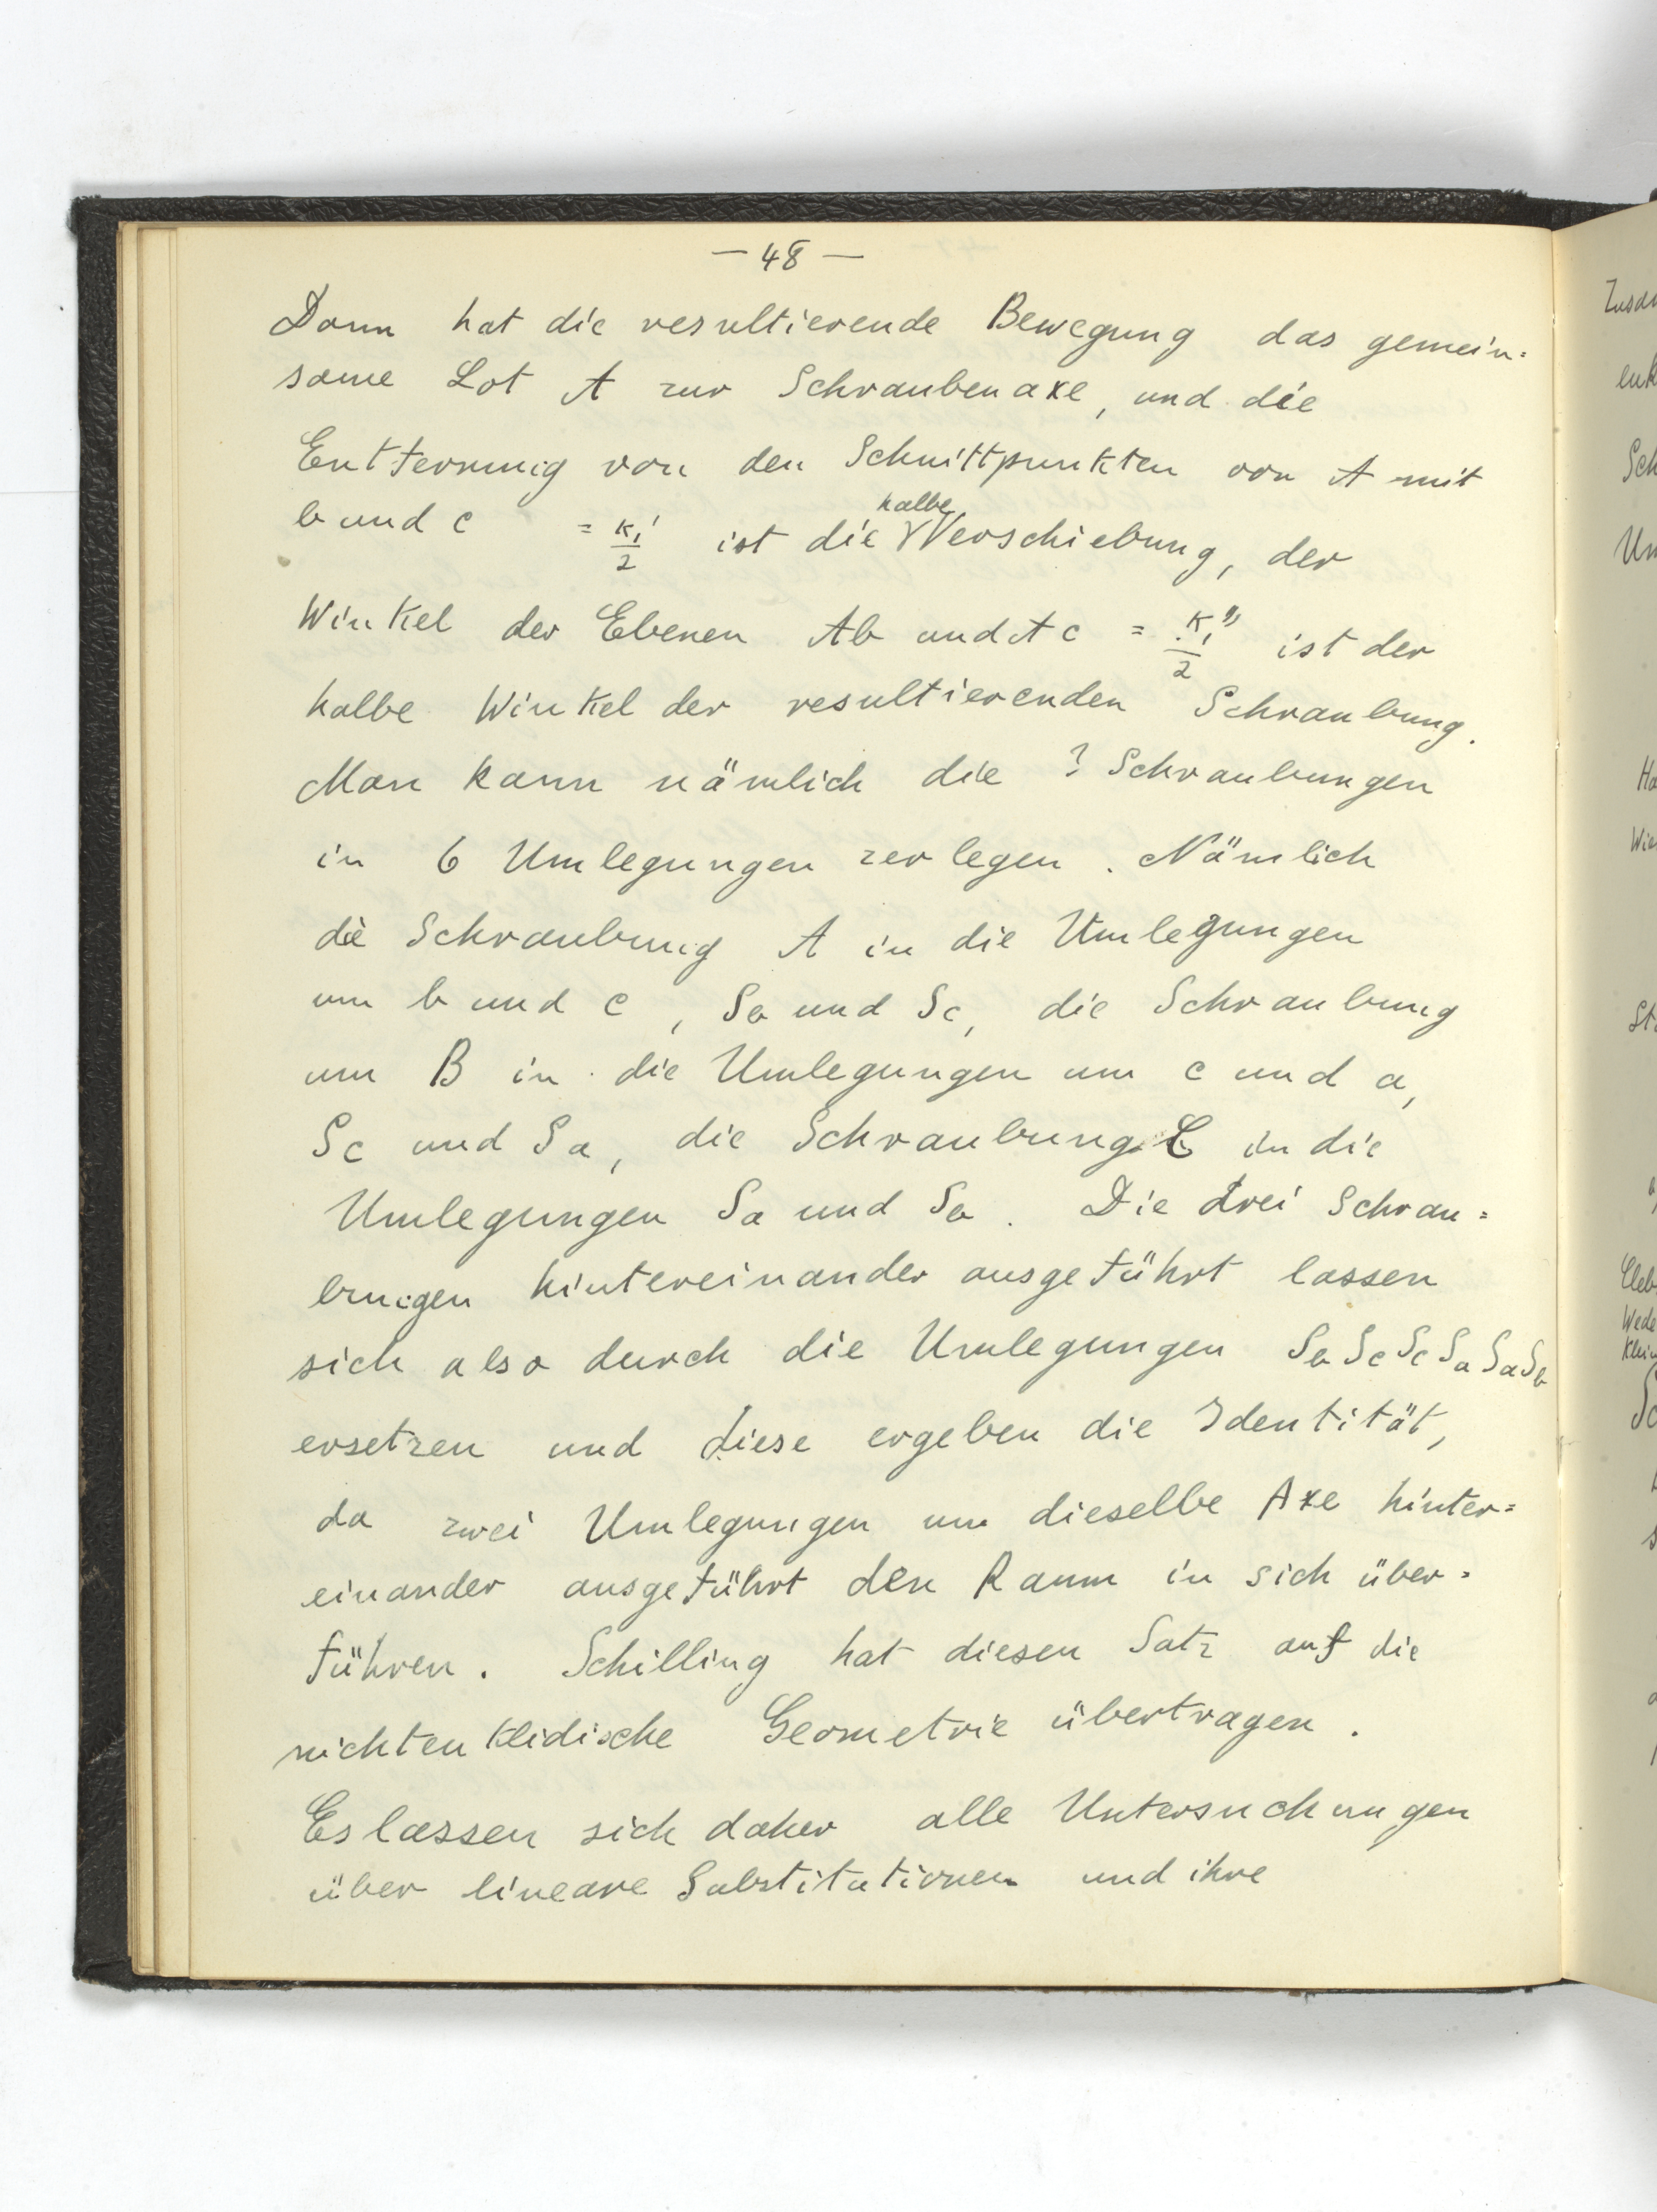 — 48 —
Dann hat die resultierende Bewegung das gemein=
same Lot A zur Schraubenaxe, und die
Entfernung von den Schnittpunkten von A mit
b und c = K₁'/2 ist die halbe Verschiebung, der
Winkel der Ebenen Ab und Ac = K₁''/2 ist der
halbe Winkel der resultierenden Schraubung.
Man kann nämlich die 3 Schraubungen
in 6 Umlegungen zerlegen. Nämlich
die Schraubung A in die Umlegungen
um b und c, Sb und Sc, die Schraubung
um B in die Umlegungen um c und a,
Sc und Sa, die Schraubung C in die
Umlegungen Sa und Sb. Die drei Schrau=
bungen hintereinander ausgeführt lassen
sich also durch die Umlegungen Sb Sc Sc Sa Sa Sb
ersetzen und diese ergeben die Identität,
da zwei Umlegungen um dieselbe Axe hinter=
einander ausgeführt den Raum in sich über=
führen. Schilling hat diesen Satz auf die
nichteuklidische Geometrie übertragen.
Es lassen sich daher alle Untersuchungen
über lineare Substitutionen und ihre